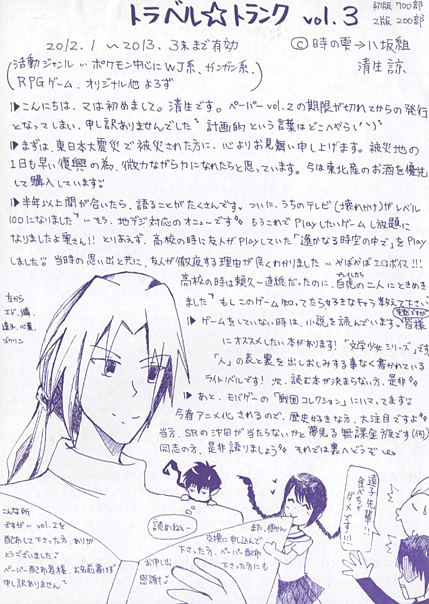 トラベル☆トランク vol.3
初版 700部
2版 200部
2012.1 〜2013.3末まで有効
©時の雫→八坂組
清生 諒
(活動ジャンル…ポケモン中心にWJ系、ガンガン系、
RPGゲーム、オリジナル他よろず)
▶こんにちは、では初めまして。清生です。ペーパーvol.2の期限が切れてからの発行
となってしまい、申し訳ありませんでした 計画的という言葉はどこへやら(''')
▶まずは、東日本大震災で被災された方に、心よりお見舞い申し上げます。被災地の
1日も早い復興の為、微力ながら力になれたらと思っています。今は東北産のお酒を優先
して購入しています
▶半年以上間が空いたら、語ることがたくさんです。ついに、うちのテレビ(壊れかけ)がレベル
100になりました …そう、地デジ対応のオニューです もうこれでPlayしたいゲームし放題に
なりましたよ奥さん!! とりあえず、高校の時に友人がPlayしていた「遙かなる時空の中で」をPlay
しました。当時の思い出と共に、友人が徹夜する理由が良くわかりました…がばがばエロボイス!!!
高校の時は頼久一直線だったのに、白虎の二人にときめき
ました もしこのゲーム知ってたら好きなキャラ教えて下さい
▶ゲームをしていない時は、小説を読んでいます。皆様
にオススメしたい本があります!「文学少女シリーズ」です。
「人」の表と裏を出しおしみする事なく書かれている
ライトノベルです! 次、読む本が決まらない方、是非
▶あと、モバゲーの「戦国コレクション」にハマってます
今春アニメ化されるので、歴史好きな方、大注目ですよ
当方、SRの市目が当たらないかと夢見る無課金族です(何)
同志の方、是非語りましょう それでは裏へどうぞ
左から
エド、燐、
遠子、心葉、
ゴウリン
読めねぇー
遠子先輩!!
食べちゃ
ダメです!!!
こんな所
ですがvol.2を
配布して下さった方、ありが
とうございました
ペーパー配布者様、お名前書けず
申し訳ありません
また、便せん
交換に申し込んで
下さった方、ペーパー配布
下さった方にも
お申し出
感謝